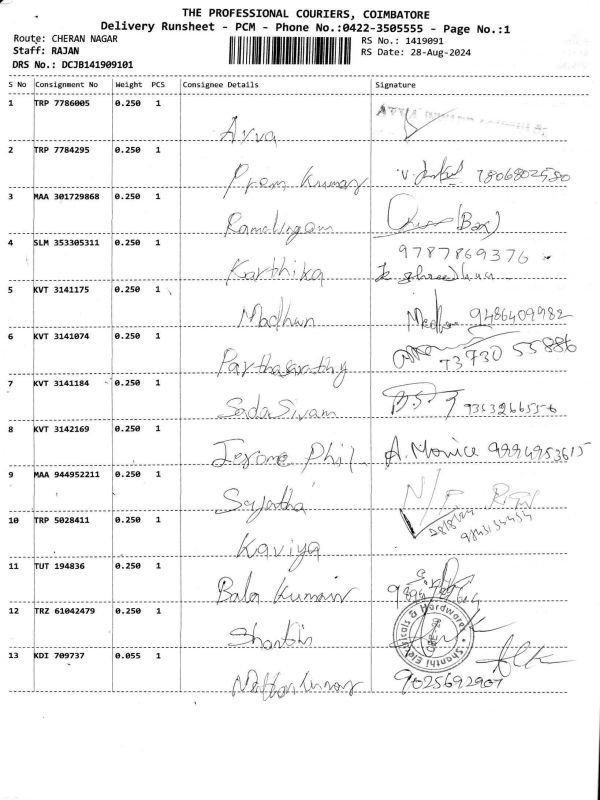 THE PROFESSIONAL COURIERS, COIMBATORE
Delivery Runsheet - PCM - Phone No.:0422-3505555 - Page No.:1
Route: CHERAN NAGAR RS No.: 1419091
Staff: RAJAN RS Date: 28-Aug-2024
DRS No.: DCJB141909101
S No Consignment No Weight PCS Consignee Details Signature
1 TRP 7786005 0.250 1
Arva
2 TRP 7784295 0.250 1
Prem Kumar 7806802580
3 MAA 301729868 0.250 1
Ramalingam (Box)
4 SLM 353305311 0.250 1 9787869376
Karthika
5 KVT 3141175 0.250 1
Madhun 9486409982
6 KVT 3141074 0.250 1
Parthasarathy 73730 55886
7 KVT 3141184 0.250 1
SadaSivam
8 KVT 3142169 0.250 1
Jerome Phil A. Monica 9994953615
9 MAA 944952211 0.250 1
Sujatha
10 TRP 5028411 0.250 1 28/8/24
Kaviya
11 TUT 194836 0.250 1
Bala Kumar
12 TRZ 61042479 0.250 1 Shanthi Electricals & Hardware
Shanthi
13 KDI 709737 0.055 1
9025692907